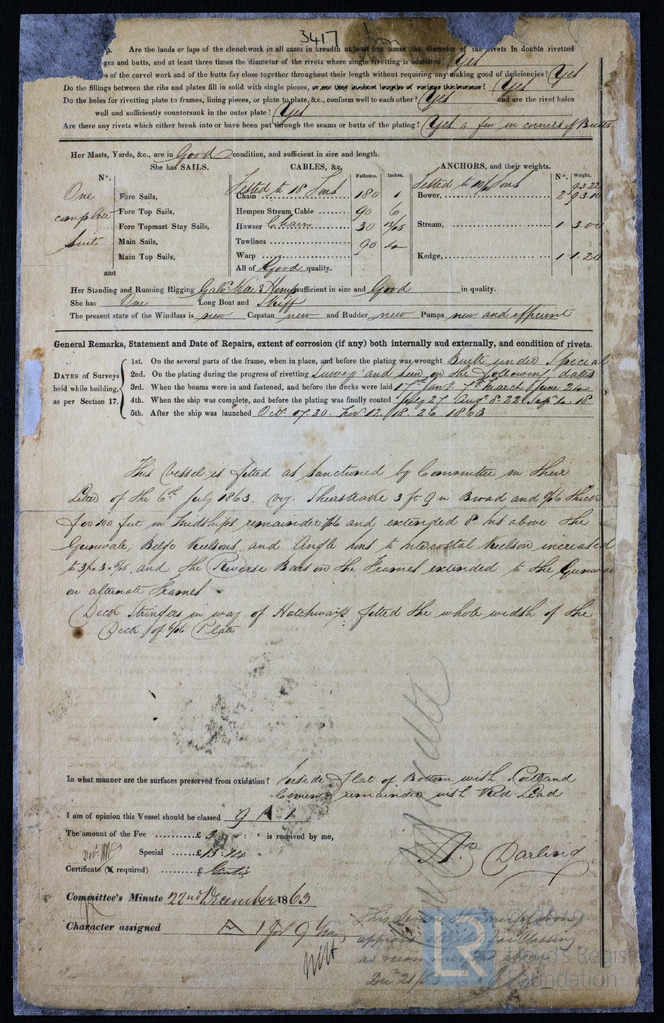 3417 Iron
Are the lands or laps of the clenchwork in all cases in breadth at least five times the diameter of the rivets in double rivetted
edges and butts, and at least three times the diameter of the rivets where single rivetting is admitted? Yes
of the carvel work and of the butts fay close together throughout their length without requiring any making good of deficiencies? Yes
Do the fillings between the ribs and plates fill in solid with single pieces, Yes
Do the holes for rivetting plate to frames, lining pieces, or plate to plate, &c., conform well to each other? Yes and are the rivet holes
well and sufficiently countersunk in the outer plate? Yes
Are there any rivets which either break into or have been put through the seams or butts of the plating? Yes a few in corners of Butts
Her Masts, Yards, &c., are in Good condition, and sufficient in size and length.
She has SAILS. CABLES, &c. Fathoms. Inches. ANCHORS, and their weights.
N°. Tested to 18 Tons Tested to Tons N°. Weight.
One Fore Sails, Chain 180 1 Bower, 2
complete Fore Top Sails, Hempen Stream Cable 90 6
suit Fore Topmast Stay Sails, Hawser Chain 30 Stream, 1 3.00
Main Sails, Towlines 90
Main Top Sails, Warp Kedge, 1 1.20
and All of Good quality.
Her Standing and Running Rigging Wire & Hemp sufficient in size and Good in quality.
She has One Long Boat and Skiff
The present state of the Windlass is new Capstan new and Rudder new Pumps new and efficient
General Remarks, Statement and Date of Repairs, extent of corrosion (if any) both internally and externally, and condition of rivets.
DATES of Surveys held while building, as per Section 17.
1st. On the several parts of the frame, when in place, and before the plating was wrought Built under Special
2nd. On the plating during the progress of rivetting Survey and seen on the following dates
3rd. When the beams were in and fastened, and before the decks were laid 7th March June 24
4th. When the ship was complete, and before the plating was finally coated July 27 Augt 8. 22 Sept 18
5th. After the ship was launched Oct 20. Nov 12. 18. 26 1863
This Vessel is fitted as sanctioned by Committee in their
Letter of the 6th July 1863. viz. Sheerstrake 3 ft 9 in Broad and thick
for feet in Midships remainder and extended 8 ins above the
Gunwale, Keelsons, and Angle Irons to intercostal Keelson increased
to and the Reverse Bars on the Frames extended to the Gunwale
on alternate Frames
Deck Stringers in way of Hatchways fitted the whole width of the
Deck of Plate
In what manner are the surfaces preserved from oxidation? Inside Flat of Bottom with Portland
Cement remainder with Red Lead
I am of opinion this Vessel should be classed 9 A 1
The amount of the Fee £ is received by me,
Special £
Certificate (if required) £ Gratis
Darling
Committee's Minute 22nd December 1863
Character assigned A 1 for 9 Yrs
approved
Dec 21/63
LR
Lloyd's Register
Foundation